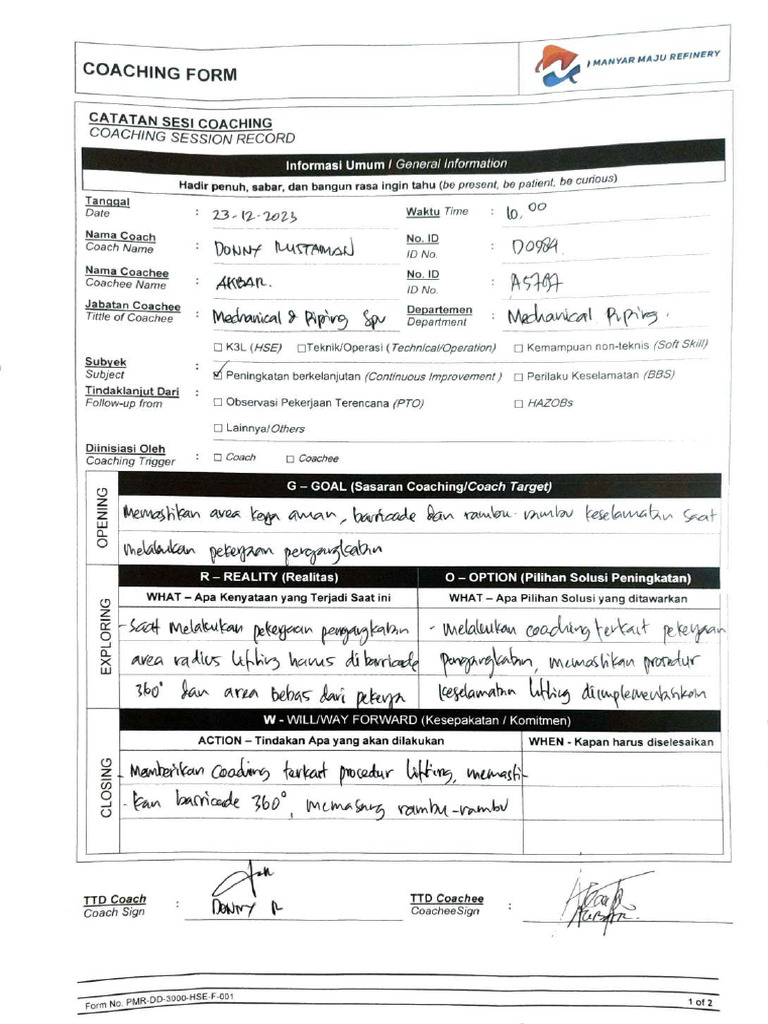 COACHING FORM
MANYAR MAJU REFINERY
CATATAN SESI COACHING
COACHING SESSION RECORD
Informasi Umum / General Information
Hadir penuh, sabar, dan bangun rasa ingin tahu (be present, be patient, be curious)
Tanggal : 23-12-2023 Waktu Time : 10.00
Date
Nama Coach : DONNY RUSTAMAN No. ID : D0984.
Coach Name ID No.
Nama Coachee : AKBAR. No. ID : A5787
Coachee Name ID No.
Jabatan Coachee : Mechanical & Piping Spv Departemen : Mechanical Piping.
Tittle of Coachee Department
☐ K3L (HSE) ☐ Teknik/Operasi (Technical/Operation) ☐ Kemampuan non-teknis (Soft Skill)
Subyek :
Subject ☑ Peningkatan berkelanjutan (Continuous Improvement ) ☐ Perilaku Keselamatan (BBS)
Tindaklanjut Dari :
Follow-up from ☐ Observasi Pekerjaan Terencana (PTO) ☐ HAZOBs
☐ Lainnya/Others
Diinisiasi Oleh : ☐ Coach ☐ Coachee
Coaching Trigger
OPENING
G – GOAL (Sasaran Coaching/Coach Target)
Memastikan area kerja aman, barricade dan rambu-rambu keselamatan saat
melakukan pekerjaan pengangkatan
EXPLORING
R – REALITY (Realitas) O – OPTION (Pilihan Solusi Peningkatan)
WHAT – Apa Kenyataan yang Terjadi Saat ini WHAT – Apa Pilihan Solusi yang ditawarkan
- Saat melakukan pekerjaan pengangkatan - Melakukan coaching terkait pekerjaan
area radius lifting harus dibarricade pengangkatan, memastikan prosedur
360° dan area bebas dari pekerja keselamatan lifting diimplementasikan
CLOSING
W - WILL/WAY FORWARD (Kesepakatan / Komitmen)
ACTION – Tindakan Apa yang akan dilakukan WHEN - Kapan harus diselesaikan
- Memberikan Coaching terkait procedur lifting, memasti-
- kan barricade 360°, memasang rambu-rambu
TTD Coach : DONNY R TTD Coachee : AKBAR.
Coach Sign CoacheeSign
Form No. PMR-DD-3000-HSE-F-001 1 of 2